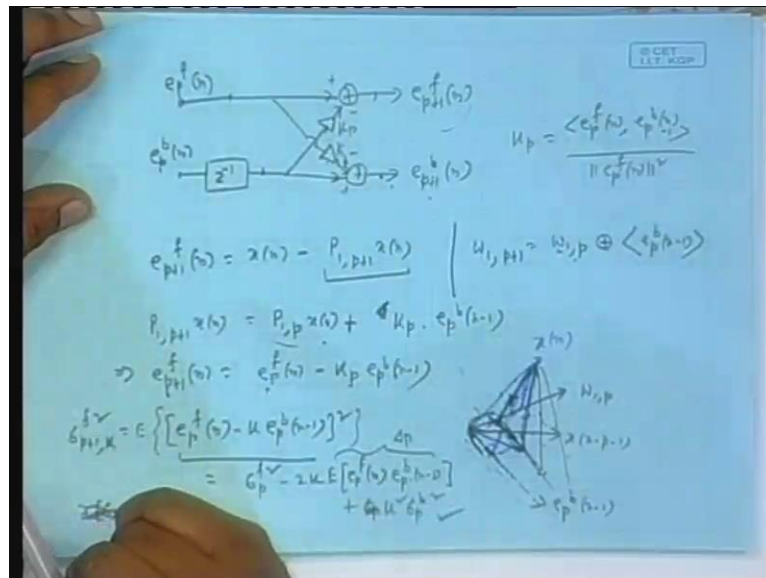 © CET
I.I.T. KGP
e_p^f(n)
+
e_{p+1}^f(n)
-
K_p
K_p
-
e_p^b(n)
z^{-1}
+
e_{p+1}^b(n)
K_p = <e_p^f(n), e_p^b(n-1)> / ||e_p^f(n)||^2
e_{p+1}^f(n) = x(n) - P_{1,p+1} x(n)
W_{1,p+1} = W_{1,p} ⊕ <e_p^b(n-1)>
P_{1,p+1} x(n) = P_{1,p} x(n) + K_p . e_p^b(n-1)
⇒ e_{p+1}^f(n) = e_p^f(n) - K_p e_p^b(n-1)
σ_{p+1,K}^{f2} = E{[e_p^f(n) - K e_p^b(n-1)]^2}
Δp
= σ_p^{f2} - 2K E[e_p^f(n) e_p^b(n-1)]
+ K^2 σ_p^{b2}
x(n)
W_{1,p}
x(n-p-1)
e_p^b(n-1)